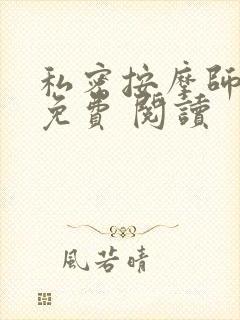 私密按摩師
免費 閱讀
風若晴